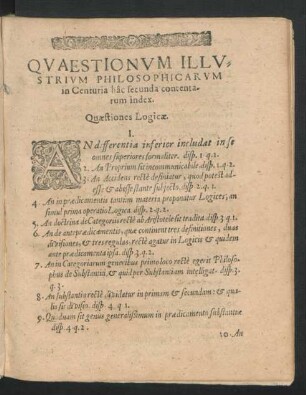 QVAESTIONVM ILLV-
STRIVM PHILOSOPHICARVM
in Centuria hâc secunda contenta-
rum index.
Quæstiones Logicæ.
I.
AN differentia inferior includat in se
omnes superiores formaliter. disp. 1. q. 1.
2. An Proprium sit incommunicabile. disp. 1. q. 2.
3. An Accidens rectè definiatur, quod potest ad-
esse & abesse subjecto. disp. 2. q. 1.
4. An in prædicamentis tantùm materia proponatur Logices, an
simul prima operatio Logica. disp. 2. q. 2.
5. An doctrina de Categoriis rectè ab Aristotele sit tradita. disp. 3. q. 1.
6. An de antepredicamentis, quæ continent tres definitiones, duas
divisiones, & tres regulas: rectè agatur in Logicis & quidem
ante prædicamenta ipsa. disp. 3. q. 2.
7. An in Categoriarum generibus primo loco rectè egerit Philoso-
phus de Substantia, & quid per Substantiam intelligat. disp. 3.
q. 3.
8. An substantia rectè dividatur in primam & secundam: & qua-
lis sit divisio. disp. 4. q. 1.
9. Quodnam sit genus generalissimum in prædicamento substantiæ
disp. 4. q. 2.
10. An